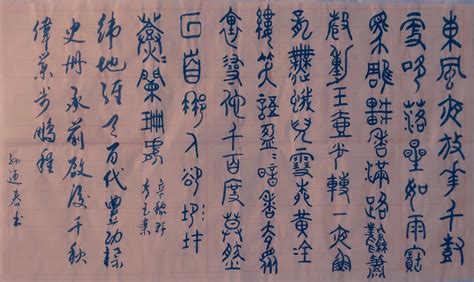 東風夜放花千樹
更吹落星如雨寶
馬雕車香滿路鳳簫
聲動玉壺光轉一夜魚
龍舞蛾兒雪柳黃金
縷笑語盈盈暗香去眾
裏尋他千百度驀然
回首那人卻在
燈火闌珊處
辛稼軒
青玉案
緯地經天百代豐功標
史冊承前啟後千秋
偉業步鵬程